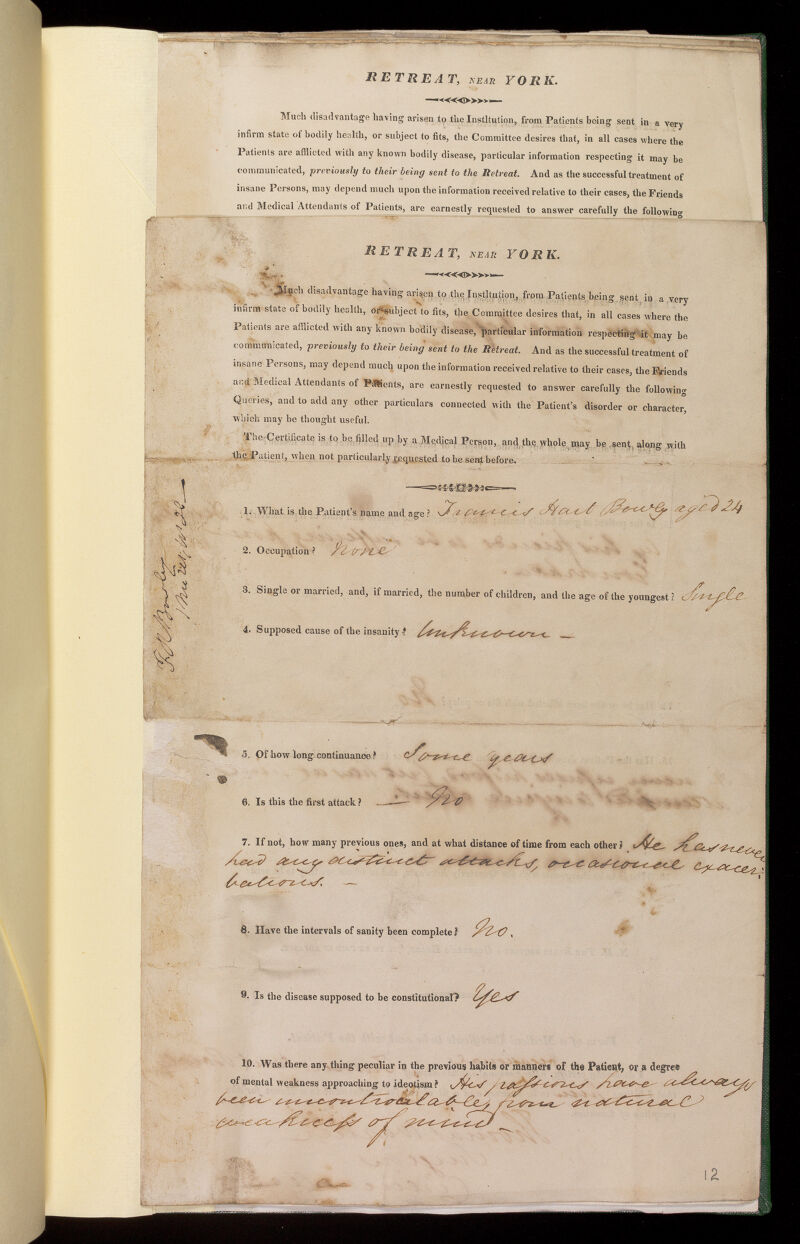 RETREAT, NEAR YORK.
Much disadvantage having arisen to the Institution, from Patients being sent in a very
infirm state of bodily health, or subject to fits, the Committee desires that, in all cases where the
Patients are afflicted with any known bodily disease, particular information respecting it may be
communicated, previously to their being sent to the Retreat. And as the successful treatment of
insane Persons, may depend much upon the information received relative to their cases, the Friends
and Medical Attendants of Patients, are earnestly requested to answer carefully the following
RETREAT, NEAR YORK.
Much disadvantage having arisen to the Institution, from Patients being sent in a very
infirm state of bodily health, or subject to fits, the Committee desires that, in all cases where the
Patients are afflicted with any known bodily disease, particular information respecting it may be
communicated, previously to their being sent to the Retreat. And as the successful treatment of
insane Persons, may depend much upon the information received relative to their cases, the Friends
and Medical Attendants of Patients, are earnestly requested to answer carefully the following
Queries, and to add any other particulars connected with the Patient's disorder or character,
which may be thought useful.
The Certificate is to be filled up by a Medical Person, and the whole may be sent along with
the Patient, when not particularly requested to be sent before.
1. What is the Patient's name and age? Francis Hart Bowly aged 24
2. Occupation? None
3. Single or married, and, if married, the number of children, and the age of the youngest? Single
4. Supposed cause of the insanity? Unknown —
5. Of how long continuance? Some years
6. Is this the first attack? — No
7. If not, how many previous ones, and at what distance of time from each other? He has never
had any distinct attacks, occasional exacer:
bations. —
8. Have the intervals of sanity been complete? No.
9. Is the disease supposed to be constitutional? Yes
10. Was there any thing peculiar in the previous habits or manners of the Patient, or a degree
of mental weakness approaching to ideotism? His passions have always
been uncontroulable, from natural
weakness of mind —
12